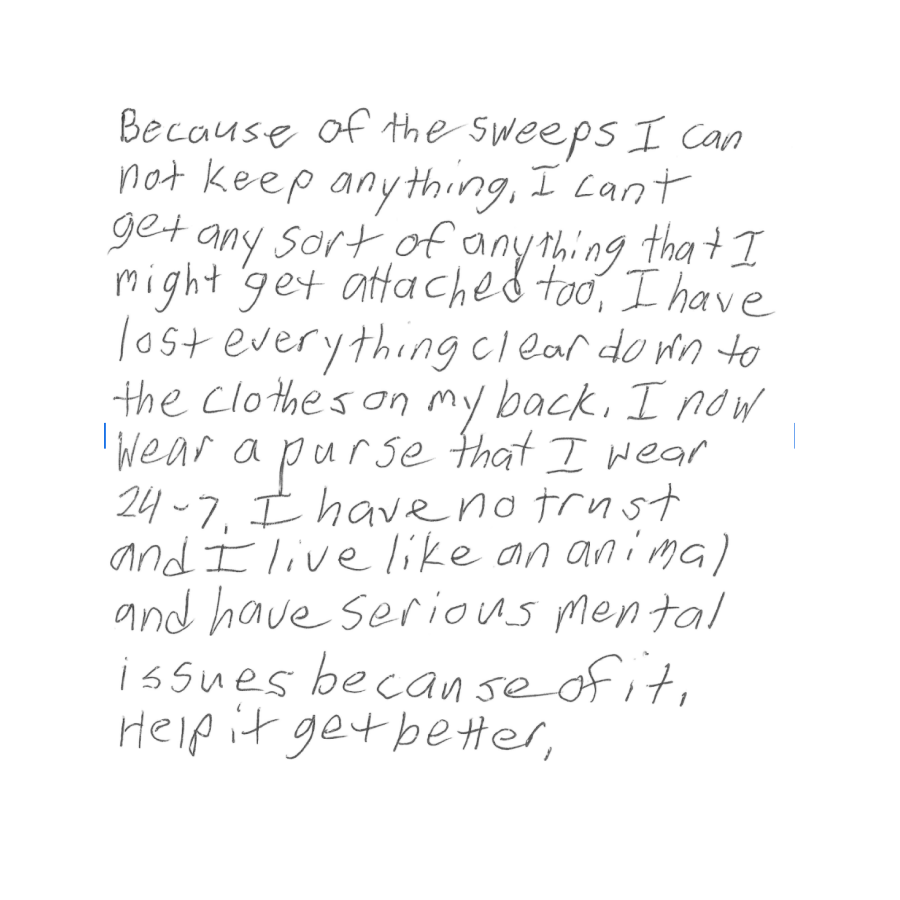 Because of the sweeps I can
not keep anything, I cant
get any sort of anything that I
might get attached too, I have
lost everything clear down to
the clothes on my back. I now
wear a purse that I wear
24-7, I have no trust
and I live like an animal
and have serious mental
issues because of it,
Help it get better,